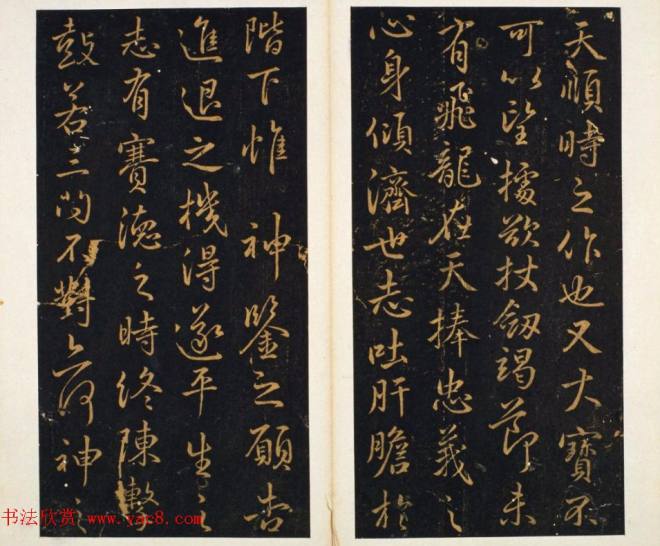 天順時之作也又大寶不
可以望據欲杖劒竭節未
有飛龍在天捧忠義之
心身傾濟世志吐肝膽於
階下惟 神鑒之願告
進退之機得遂平生之
志有賽德之時終陳擊
鼓若三問不對亦何神之
书法欣赏 www.yac8.com